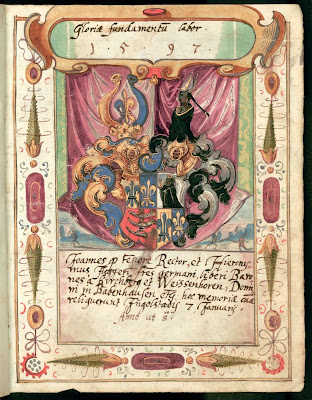 Gloriæ fundamentū labor
1597
Joannes p tepore Rector, et Hieronimus Fuggeri fres germani, liberi Baro
nes a Kirchberg et Weissenhorn, Domi
ni in Babenhausen etc. hāc memoriæ cā
reliquerunt Ingolstadij 7 Januarij
Anno ut sᵃ